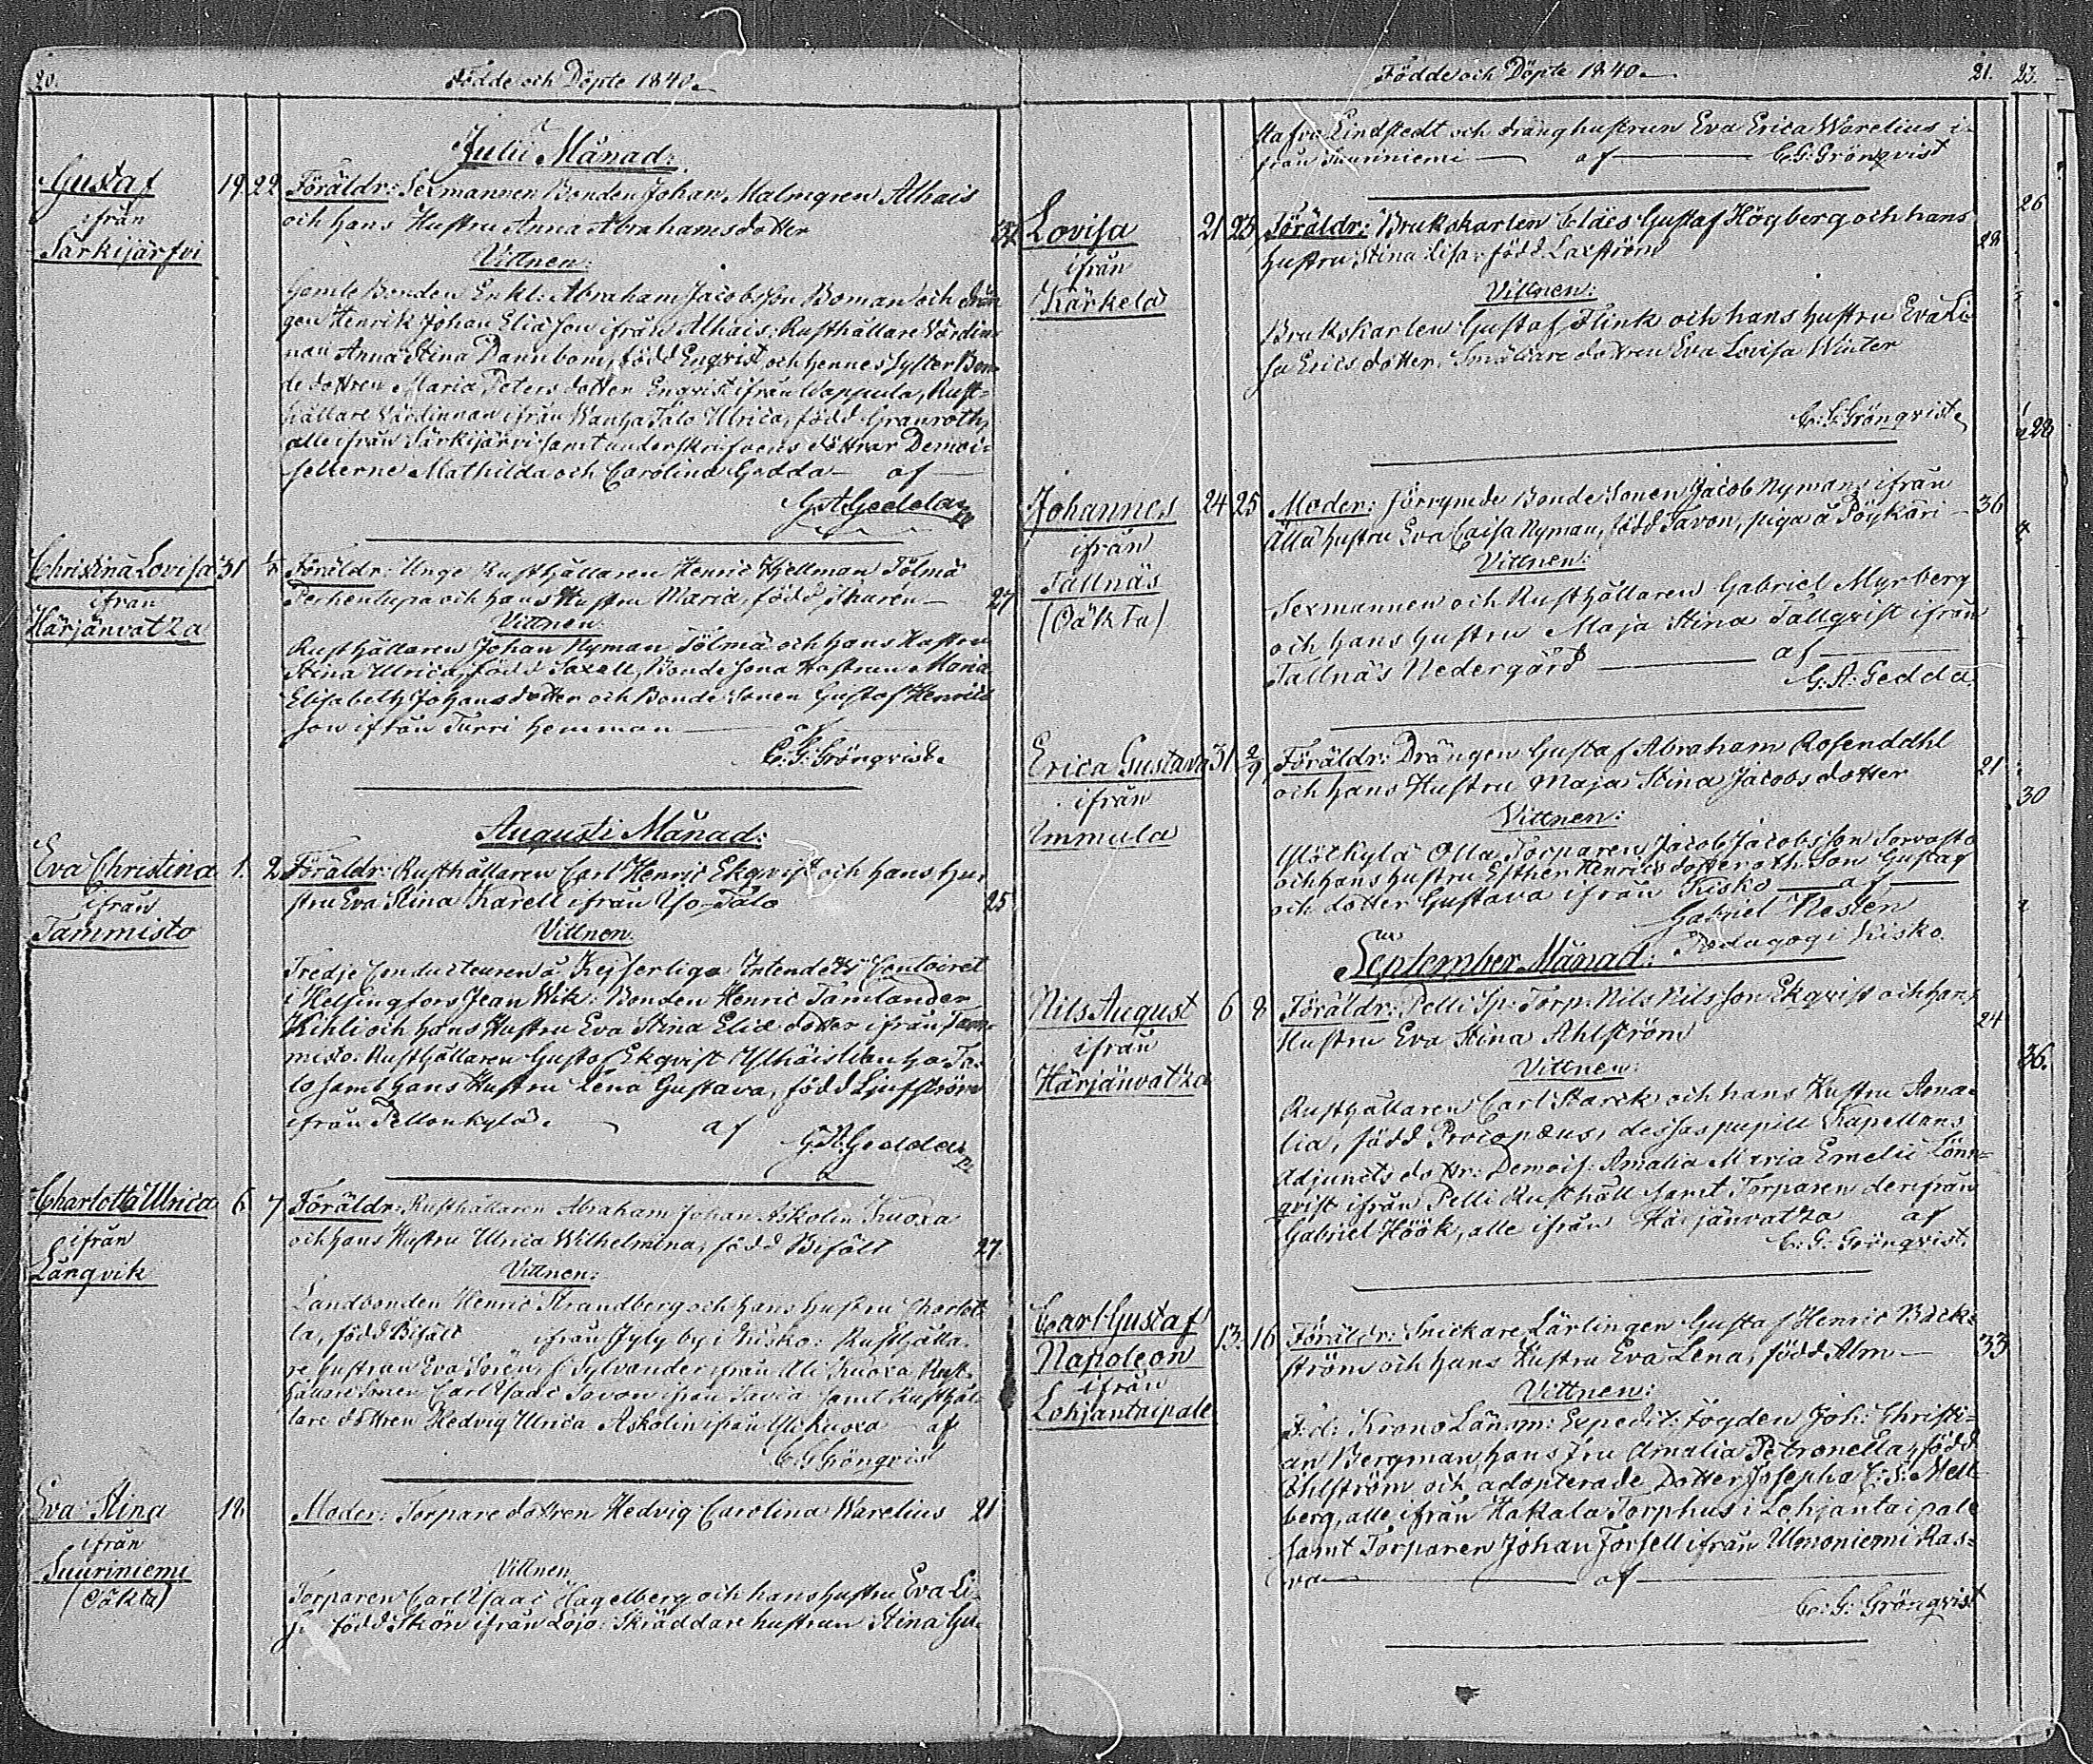 20.
Födde och Döpte 1840.
Julii Månad:
Gustaf
ifrån
Särkijärfvi
19. 22. Föräldr: Sexmannen Bonden Johan Malmgren Alhais
och hans Hustru Anna Abrahamsdotter
Vittnen:
Gamle Bonden Enkl: Abraham Jacobsson Boman och drän
gen Henrik Johan Eliasson ifrån Alhais, Rusthållare Värdin
nan Anna Stina Dannbom, född Enqvist, och hennes Syster Bon
de dottren Maria Peters dotter Enqvist ifrån Wappula, Rust-
hållare Värdinnan ifrån Wanha Talo Ulrica, född Granroth,
alle ifrån Särkijärvi samt underskrifvens döttrar Demoi-
sellerne Mathilda och Carolina Gedda af
G. A. Gedda
Christina Lovisa
ifrån
Härjänvatza
31 Föräldr: Unge Rusthållaren Henric Hjellman Tölmä
Perhentupa och hans Hustru Maria, född 27
Vittnen:
Rusthållaren Johan Nyman Tölmä och hans Hustru
Stina Ulrica, född Saxell, Bonde Sons Hustrun Maria
Elisabeth Johansdotter och Bonde Sonen Gustaf Henrics
son ifrån Turri hemman
C. G. Grönqvist.
Augusti Månad:
Eva Christina
ifrån
Tammisto
1. 2. Föräldr: Rusthållaren Carl Henric Ekqvist och hans Hu-
stru Eva Stina Karell ifrån Yso-Talo 25
Vittnen.
Tredje Conducteuren å Kejserliga Intendets Contoiret
i Helsingfors Jean Wik: Bonden Henric Tamlander
Kihli och hans Hustru Eva Stina Eliæ dotter ifrån Tam-
misto: Rusthållaren Gustaf Ekqvist
lo samt hans Hustru Lena Gustava, född Ljufström
ifrån Pellonkylä. af
G. A. Gedda
Charlotta Ulrica
ifrån
Långvik
6. 7 Föräldr: Rusthållaren Abraham Johan Askolin Kuoxa
och hans Hustru Ulrica Wilhelmina, född Bifält 27.
Vittnen:
Landbonden Henric Strandberg och hans hustru Charlot-
ta, född Bifält ifrån Jyly by i Kisko: Rusthålla-
re hustrun Eva Sorén, f. Sylvander ifrån Ali Kuoxa Rust-
hållare Sonen Carl Isaac Savon ifrån samt Rusthål-
lare dottren Hedvig Ulrica Askolin ifrån Yli Kuoxa af
C. G. Grönqvist
Eva Stina
ifrån
Suuriniemi
(Oåkta)
18. Moder: Torpare dottren Hedvig Carolina Warelius 21
Vittnen
Torparen Carl Isaac Hagelberg och hans hustru Eva Li-
sa född Skön ifrån Lojo: Skräddare hustrun Stina Gu-
Födde och Döpte 1840.
21. 23.
stafva Lindstedt och dränghustrun Eva Erica Warelius i-
från Suuriniemi af C. G. Grönqvist
26
Lovisa
ifrån
Kärkelä
21 23 Föräldr: Brukskarlen Claës Gustaf Högberg och hans
hustru Stina Lisa, född Laxström 28
Vittnen:
Brukskarlen Gustaf Flink och hans hustru Eva Li-
sa Ericsdotter, Smältare dottren Eva Lovisa Winter
C. G. Grönqvist
28
Johannes
ifrån
Tallnäs
(Oäkta)
24 25 Moder: förrymde Bonde Sonen Jacob Nymans ifrån 36
Ållä hustru Eva Caisa Nyman, född Savon, piga å Pöykäri
Vittnen:
Sexmannen och Rusthållaren Gabriel Myrberg
och hans hustru Maja Stina Tallqvist ifrån
Tallnäs Nedergård af
G. A. Gedda.
Erica Gustava
ifrån
Immula
31. 2/9 Föräldr: Drängen Gustaf Abraham Rosendahl
och hans Hustru Maja Stina Jacobs dotter 21
30
Vittnen:
Olla Torparen Jacob Jacobsson Sorvasto
och hans hustru Esther Henricsdotter Son Gustaf
och dotter Gustava ifrån Kisko af
Gabriel Neslen
Pedagog i Kisko.
September Månad:
Nils August
ifrån
Härjänvatza
6 8 Föräldr: Pelli Sp: Torp: Nils Nilsson Ekqvist och hans
Hustru Eva Stina Ahlström 24
36.
Vittnen:
Rusthållaren Carl Starck och hans Hustru Ama-
lia, född Procopæus, dessas pupill Kapellans
Adjuncts dottr: Demois: Amalia Maria Emelie Lönn-
qvist ifrån Pelli Rusthåll samt Torparen derifrån
Gabriel Höök, alle ifrån Härjänvatza af
C. G. Grönqvist.
Carl Gustaf
Napoleon
ifrån
Lohjantaipale
13. 16. Föräldr: Snickare Lärlingen Gustaf Henric Bäck-
ström och hans Hustru Eva Lena, född Alm 33
Vittnen:
F:d: Krono Länsm: Expedit: fogden Joh: Christi-
an Bergman, hans Fru Amalia Petronella, född
Ahlström och adopterade Dotter Josepha C: S: Mell-
berg, alle ifrån Hakala Torphus i Lohjantaipale
samt Torparen Johan Forsell ifrån Ulmoniemi Kas-
va af
C. G. Grönqvist